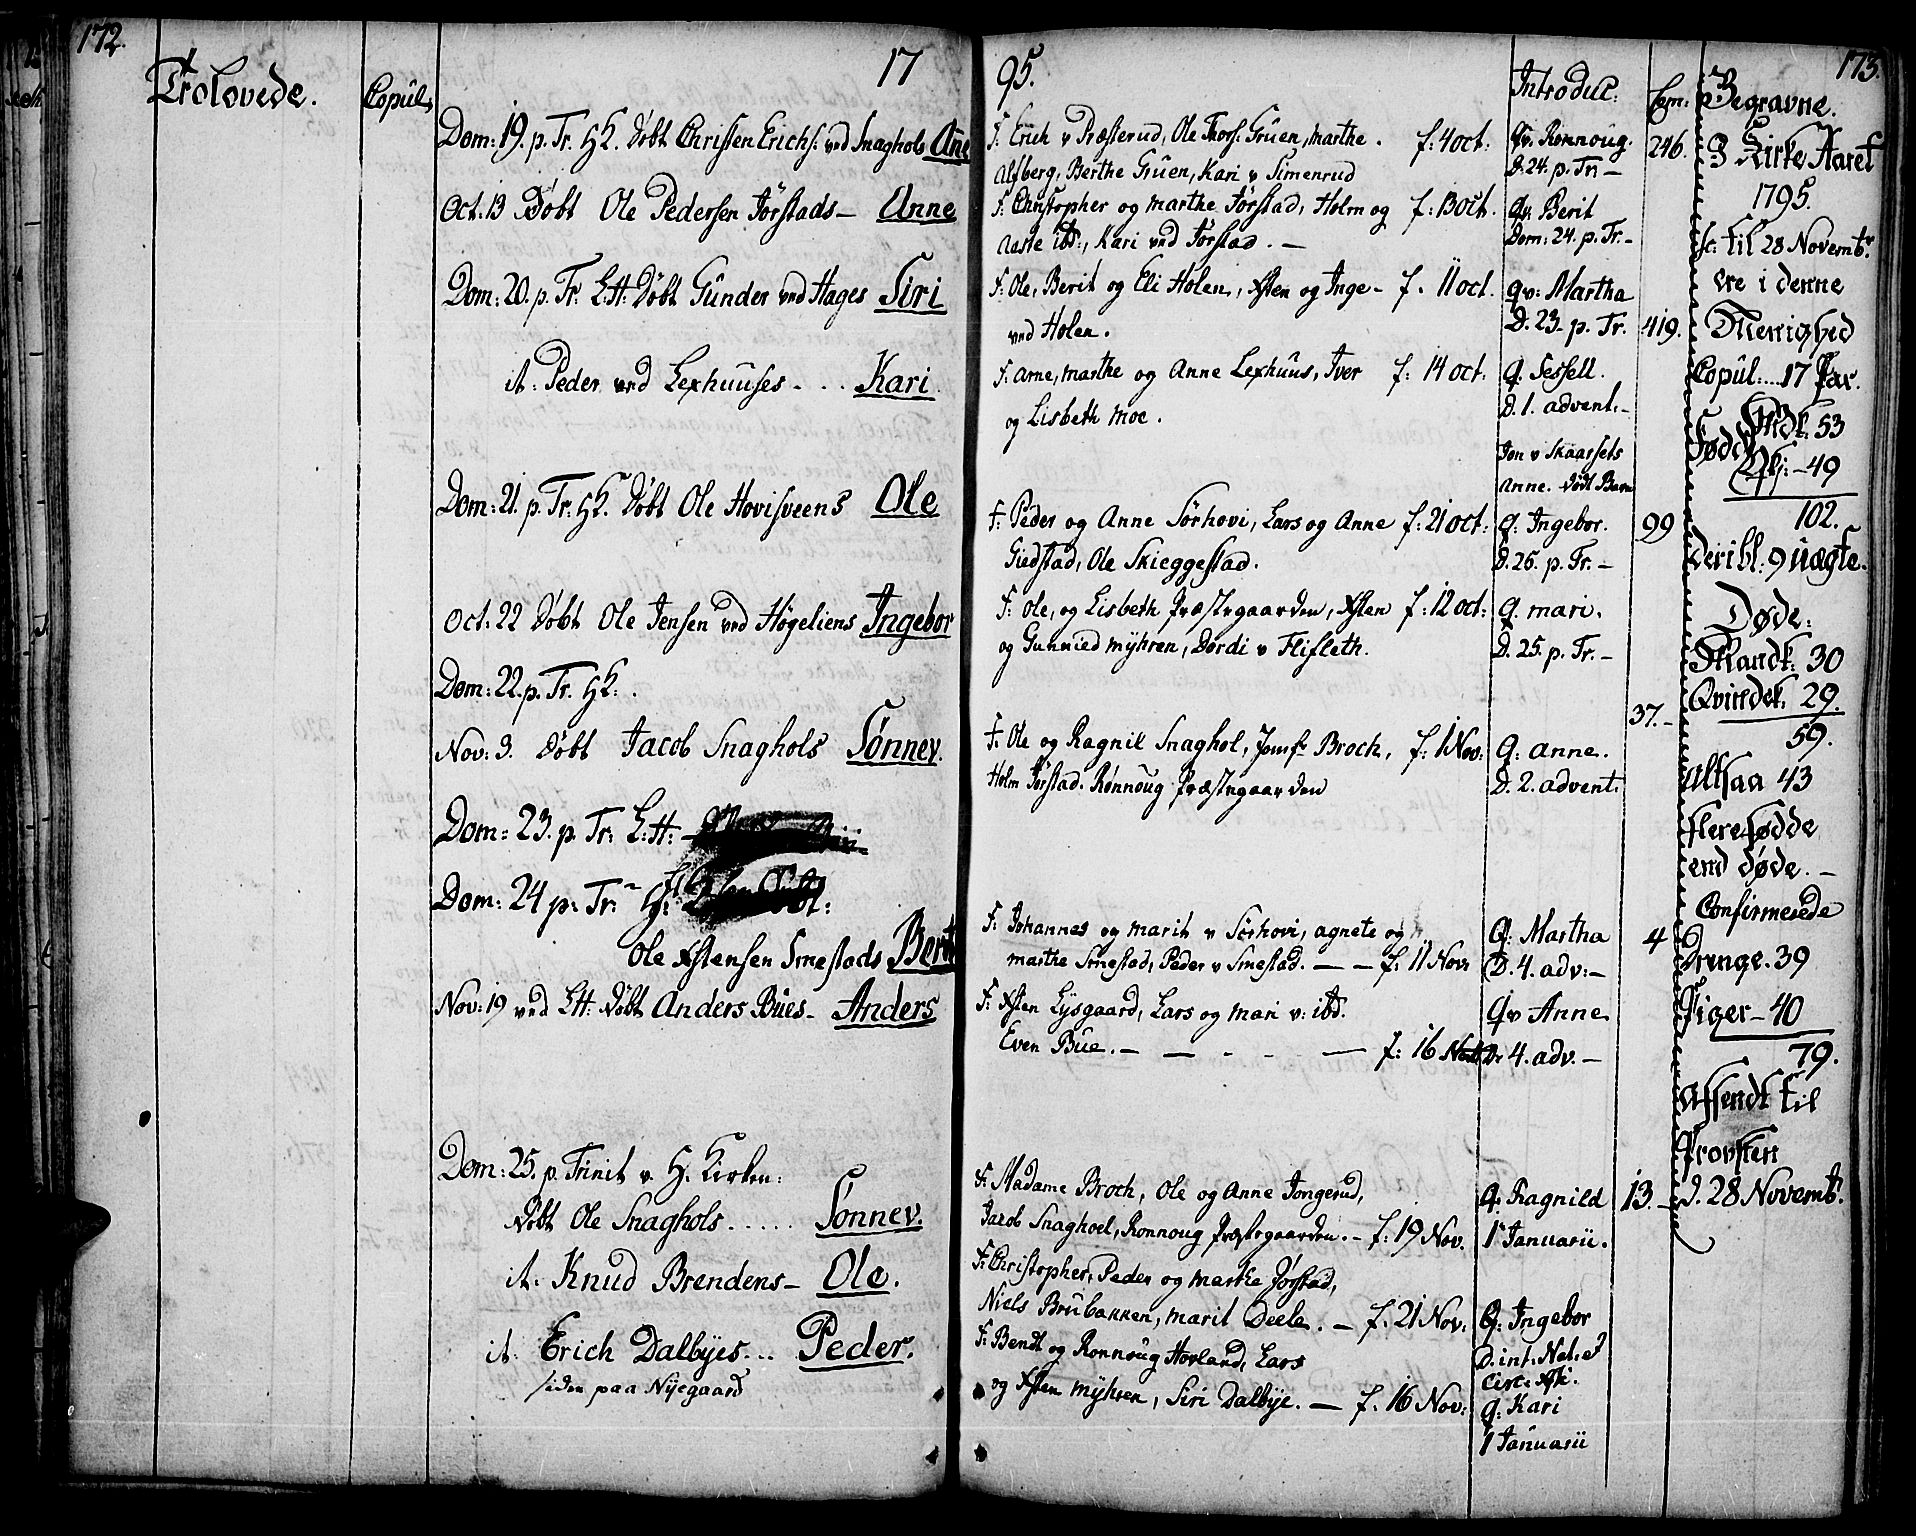 172.
Trolovede.
Copul.
17
Dom: 19. p. Tr. HK. Døbt Christen Erichs. ved Snaghols Ane
Oct. 13 Døbt Ole Pedersen Jørstads - Anne
Dom: 20. p. Tr. L:H: Døbt Gunder ved Hages Siri
it: Peder ved Lexhuuses - . . Kari
Dom: 21. p. Tr: HK. Døbt Ole Hovisveens Ole
Oct: 22 Døbt Ole Jensen ved Høgeliens Ingebor
Dom: 22. p. Tr. HK: .
Nov: 3. døbt Jacob Snaghols Sønnev.
Dom: 23. p. Tr: L:H:
Dom: 24 p: Tr: H:
Ole Xstensen Smestads Berit
Nov: 19 ved LH: Døbt Anders Bues - Anders
Dom: 25. p. Trinit v. H. Kirken:
Døbt Ole Snaghols . . . . . Sønnev.
it: Knud Brendens - Ole.
it: Erich Dalbyes . . . Peder.
siden paa Nyegaard
95.
173.
Introduc:
Com:
Begravne.
F: Erich v Præsterud, Ole Thors: Gruen, Marthe . f: 4 oct: Qv. Rønnoug. 246.
Alfberg, Berthe Gruen, Kari v Simenrud D. 24. p. Tr: -
F: Christopher og Marthe Jørstad, Holm og f: 13 oct. Qv. Berit
Aaste ibd:, Kari ved Jørstad. - Dom: 24. p. Tr. -
F: Ole, Berit og Eli Holen, Xsten og Inge - f. 11 oct. qv: Martha
ved Holen. D. 23. p. Tr. 419.
F: Arne, Marthe og Anne Lexhuus, Iver f: 14 oct: Q. Sessell.
og Lisbeth Moe. D. 1. advent: -
Jon v Skaarsets
Anne. Dødt Barn
F: Peder og Anne Sørhovi, Lars og Anne f: 21 oct: Q: Ingebor. 99
Giedstad, Ole Skieggestad. D. 25. p. Tr. -
F: Ole, og Lisbeth Præstegaarden, Xsten f: 12 oct: Q. Mari.
og Gunnied Myhren, Dordi v Flifleth. D. 25. p. Tr. -
37. -
F: Ole og Ragnil Snaghol, Jomf: Broch, f: 1 Nov: Q: Anne.
Holm Jørstad. Rønnoug Præstegaarden D. 2. advent:
F: Johannes og Marit v Sørhovi, Agnete og Q: Martha 4
Marthe Smestad, Peder v Smestad. - - f: 11 Nov: D. 4. adv: -
F: Xsten Lysgaard, Lars og Mari v: ibd. Qv Anne
Even Bue. - - - - - f: 16 D: 4. adv. -
F: Madame Broch, Ole og Anne Jongerud, Q: Ragnild 13. -
Jacob Snaghoel, Rønnoug Præstegaarden. - f: 19 Nov. 1 Januarii.
F: Christopher, Peder og Marthe Jørstad,
Niels Brubakken, Marit Deele. - f: 21 Nov: Q: Ingebor
F: Bendt og Rønnoug Hovland, Lars D. int: Nat: et
Circ:
og Xsten Myhren, Siri Dalbye. - f: 16 Nov: Q: Kari
1 Januarii
I Kirke Aaret
1795.
sc: til 28 Novembr:
ere i denne
Menighed
Copul: .... 17 Par.
Mdk: 53
Fødde
Qk: - 49
102.
Deribl: 9 Uægte.
Døde:
Mandk: 30
Qvindek. 29.
59.
Altsaa 43
flere fødde
end døde. -
Confirmerede
Drenge. 39
Piger - 40
79.
Afsendt til
Provsten
d. 28 Novemb: